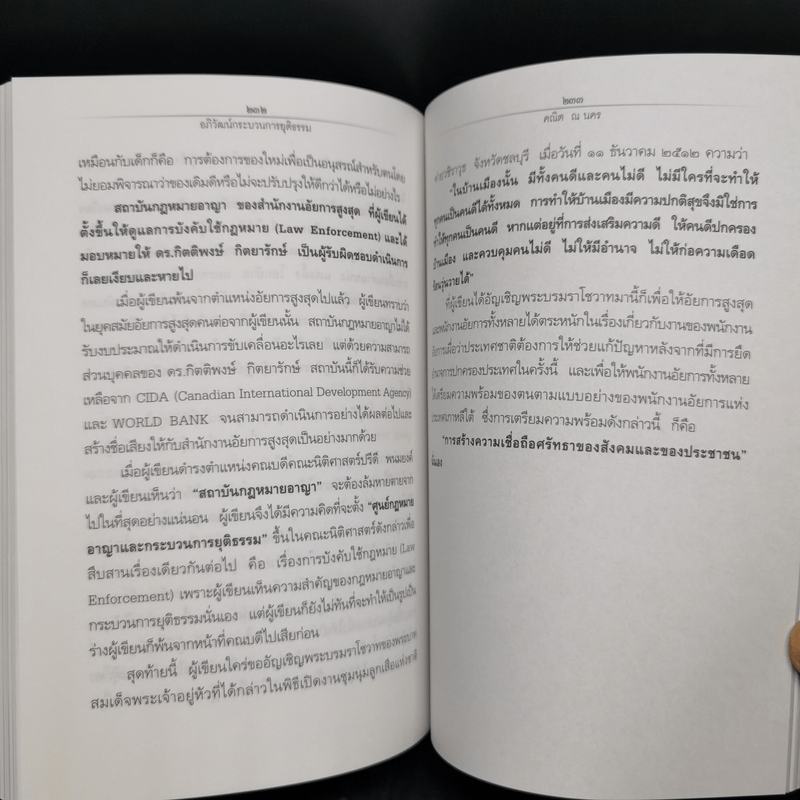 ๒๓๒
อภิวัฒน์กระบวนการยุติธรรม
เหมือนกับเด็กก็คือ การต้องการของใหม่เพื่อเป็นอนุสรณ์สำหรับตนโดย
ไม่ยอมพิจารณาว่าของเดิมดีหรือไม่จะปรับปรุงให้ดีกว่าได้หรือไม่อย่างไร
สถาบันกฎหมายอาญา ของสำนักงานอัยการสูงสุด ที่ผู้เขียนได้
ตั้งขึ้นให้ดูแลการบังคับใช้กฎหมาย (Law Enforcement) และได้
มอบหมายให้ ดร.กิตติพงษ์ กิตยารักษ์ เป็นผู้รับผิดชอบดำเนินการ
ก็เลยเงียบและหายไป
เมื่อผู้เขียนพ้นจากตำแหน่งอัยการสูงสุดไปแล้ว ผู้เขียนทราบว่า
ในยุคสมัยอัยการสูงสุดคนต่อจากผู้เขียนนั้น สถาบันกฎหมายอาญาไม่ได้
รับงบประมาณให้ดำเนินการขับเคลื่อนอะไรเลย แต่ด้วยความสามารถ
ส่วนบุคคลของ ดร.กิตติพงษ์ กิตยารักษ์ สถาบันนี้ก็ได้รับความช่วย
เหลือจาก CIDA (Canadian International Development Agency)
และ WORLD BANK จนสามารถดำเนินการอย่างได้ผลต่อไปและ
สร้างชื่อเสียงให้กับสำนักงานอัยการสูงสุดเป็นอย่างมากด้วย
เมื่อผู้เขียนดำรงตำแหน่งคณบดีคณะนิติศาสตร์ปรีดี พนมยงค์
และผู้เขียนเห็นว่า "สถาบันกฎหมายอาญา" จะต้องล้มหายตายจาก
ไปในที่สุดอย่างแน่นอน ผู้เขียนจึงได้มีความคิดที่จะตั้ง "ศูนย์กฎหมาย
อาญาและกระบวนการยุติธรรม" ขึ้นในคณะนิติศาสตร์ดังกล่าวเพื่อ
สืบสานเรื่องเดียวกันต่อไป คือ เรื่องการบังคับใช้กฎหมาย (Law
Enforcement) เพราะผู้เขียนเห็นความสำคัญของกฎหมายอาญาและ
กระบวนการยุติธรรมนั่นเอง แต่ผู้เขียนก็ยังไม่ทันที่จะทำให้เป็นรูปเป็น
ร่างผู้เขียนก็พ้นจากหน้าที่คณบดีไปเสียก่อน
สุดท้ายนี้ ผู้เขียนใคร่ขออัญเชิญพระบรมราโชวาทของพระบาท
สมเด็จพระเจ้าอยู่หัวที่ได้กล่าวในพิธีเปิดงานชุมนุมลูกเสือแห่งชาติ
๒๓๓
คณิต ณ นคร
จังหวัดชลบุรี เมื่อวันที่ ๑๑ ธันวาคม ๒๕๑๒ ความว่า
"ในบ้านเมืองนั้น มีทั้งคนดีและคนไม่ดี ไม่มีใครที่จะทำให้
ทุกคนเป็นคนดีได้ทั้งหมด การทำให้บ้านเมืองมีความปกติสุขจึงมิใช่การ
ทำให้ทุกคนเป็นคนดี หากแต่อยู่ที่การส่งเสริมความดี ให้คนดีปกครอง
บ้านเมือง และควบคุมคนไม่ดี ไม่ให้มีอำนาจ ไม่ให้ก่อความเดือด
ร้อนวุ่นวายได้"
ที่ผู้เขียนได้อัญเชิญพระบรมราโชวาทมานี้ก็เพื่อให้อัยการสูงสุด
และพนักงานอัยการทั้งหลายได้ตระหนักในเรื่องเกี่ยวกับงานของพนักงาน
อัยการเมื่อว่าประเทศชาติต้องการให้ช่วยแก้ปัญหาหลังจากที่มีการยึด
อำนาจการปกครองประเทศในครั้งนี้ และเพื่อให้พนักงานอัยการทั้งหลาย
ได้เตรียมความพร้อมของตนตามแบบอย่างของพนักงานอัยการแห่ง
ประเทศเกาหลีใต้ ซึ่งการเตรียมความพร้อมดังกล่าวนี้ ก็คือ
"การสร้างความเชื่อถือศรัทธาของสังคมและของประชาชน"
นั่นเอง